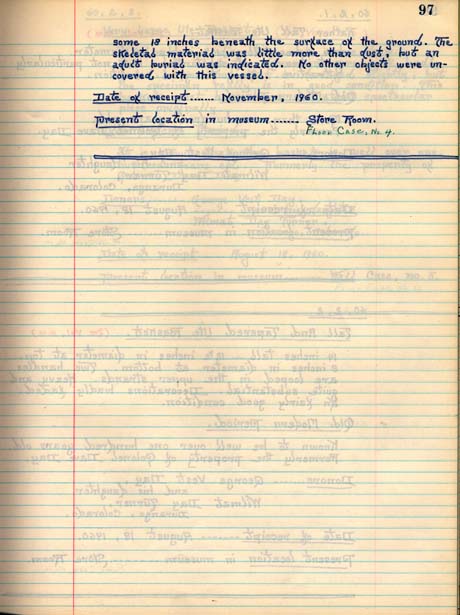 97
some 18 inches beneath the surface of the ground. The
skeletal material was little more than dust, but an
adult burial was indicated. No other objects were un-
covered with this vessel.
Date of receipt....... November, 1960.
Present location in museum....... Store Room.
Floor Case, No. 4.